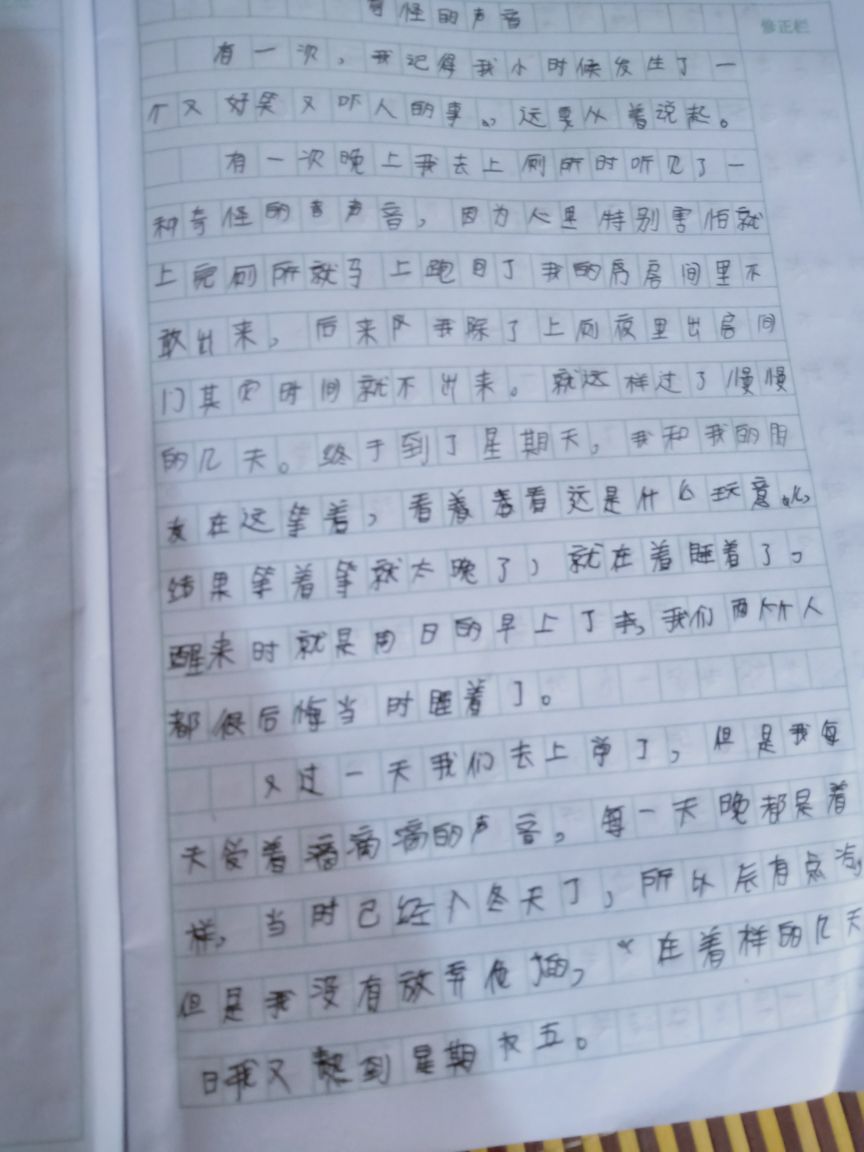 奇怪的声音
修正栏
有一次，我记得我小时候发生了一
个又好笑又吓人的事。，这要从着说起。
有一次晚上我去上厕所时听见了一
种奇怪的声音，因为人是特别害怕就
上完厕所就马上跑回了我的房间里不
敢出来，后来我除了上厕夜里出房间
门其它时间就不出来。就这样过了慢慢
的几天。终于到了星期天，我和我的朋
友在这等着，看着看这是什么玩意儿，
结果等着等就太晚了，就在着睡着了。
醒来时就是周日的早上了，我们两个人
都很后悔当时睡着了。
又过一天我们去上学了，但是我每
天受着滴滴滴的声音，每一天晚都是着
样，当时已经入冬天了，所以床有点冷，
但是我没有放弃，在着样的几天
日我又熬到星期五。